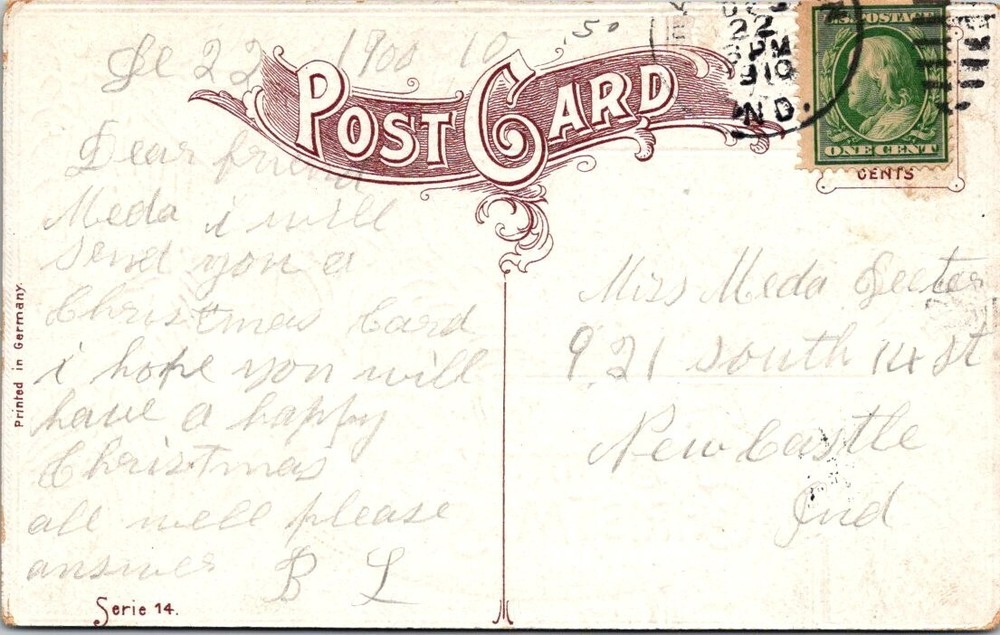 De 22 1900 10
POST CARD
DEC
22
PM
1910
IND.
U.S. POSTAGE
ONE CENT
CENTS
Dear friend
Meda i will
send you a
Christmas Card
i hope you will
have a happy
Christmas
all well please
answer B L
Miss Meda Deeter
921 south 14 st
New Castle
Ind
Printed in Germany.
Serie 14.